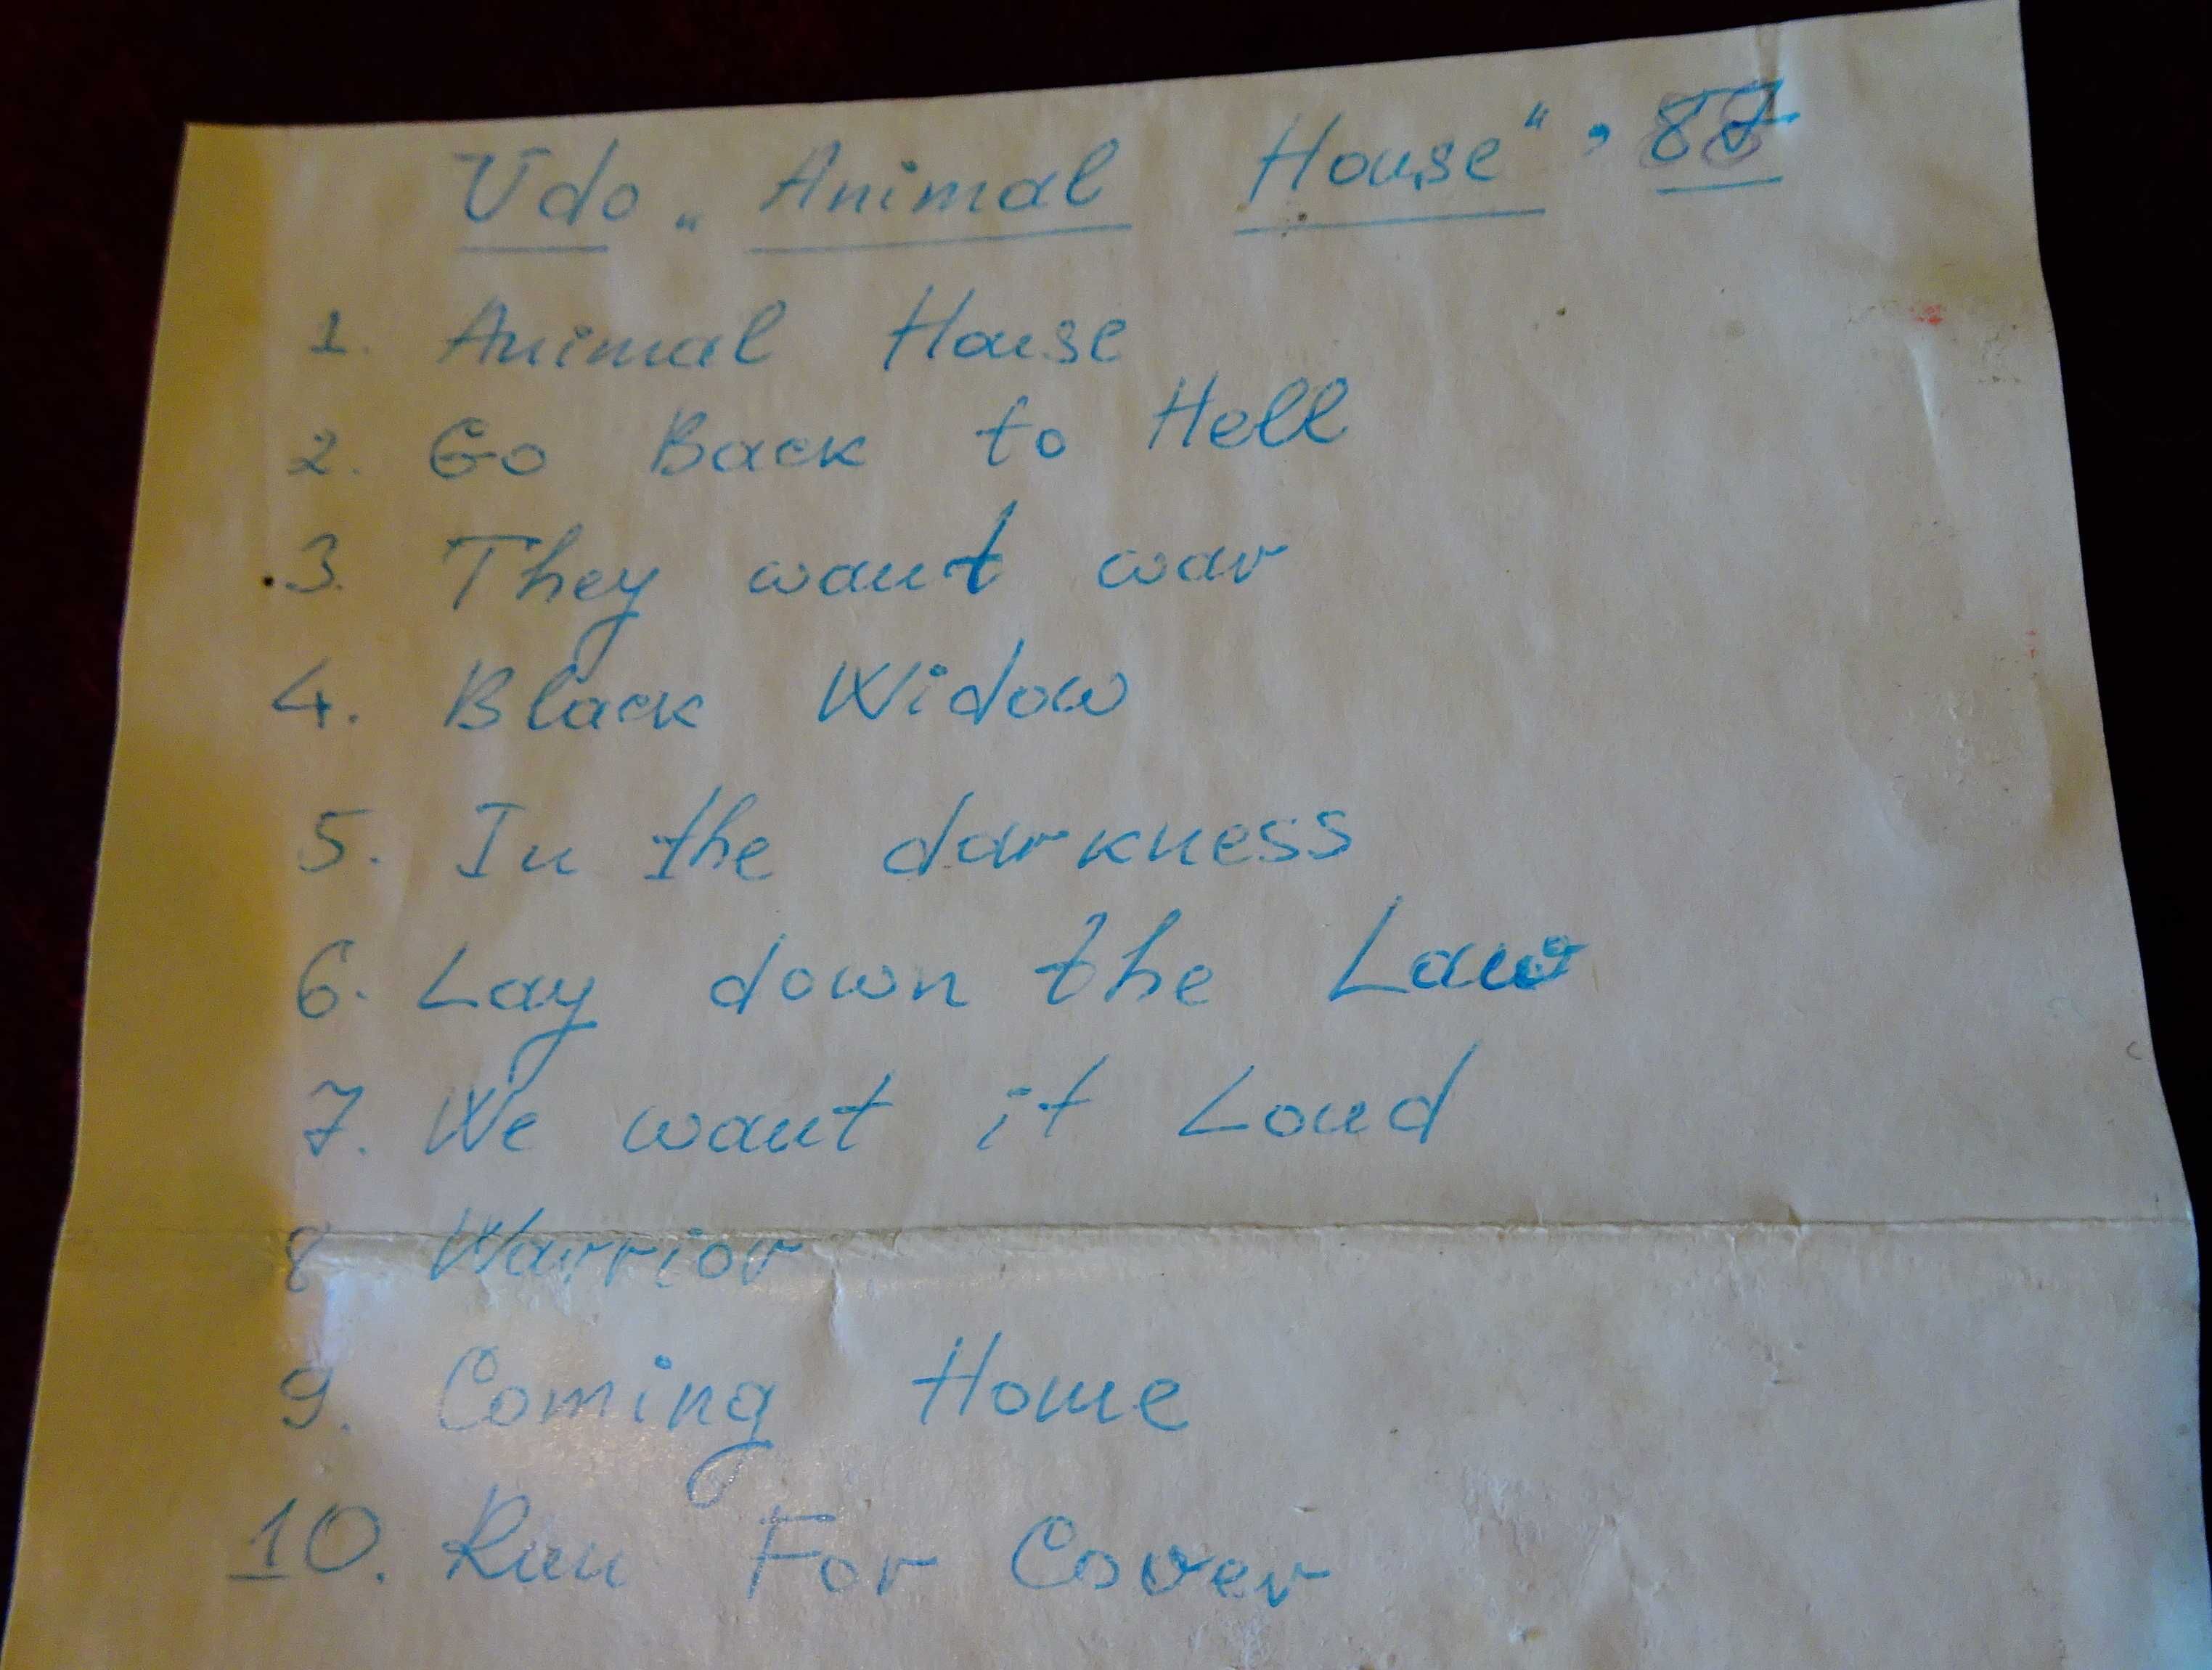 Udo „Animal House“, 87
1. Animal House
2. Go Back to Hell
3. They want war
4. Black Widow
5. In the darkness
6. Lay down the Law
7. We want it Loud
8 Warrior
9. Coming Home
10. Run For Cover